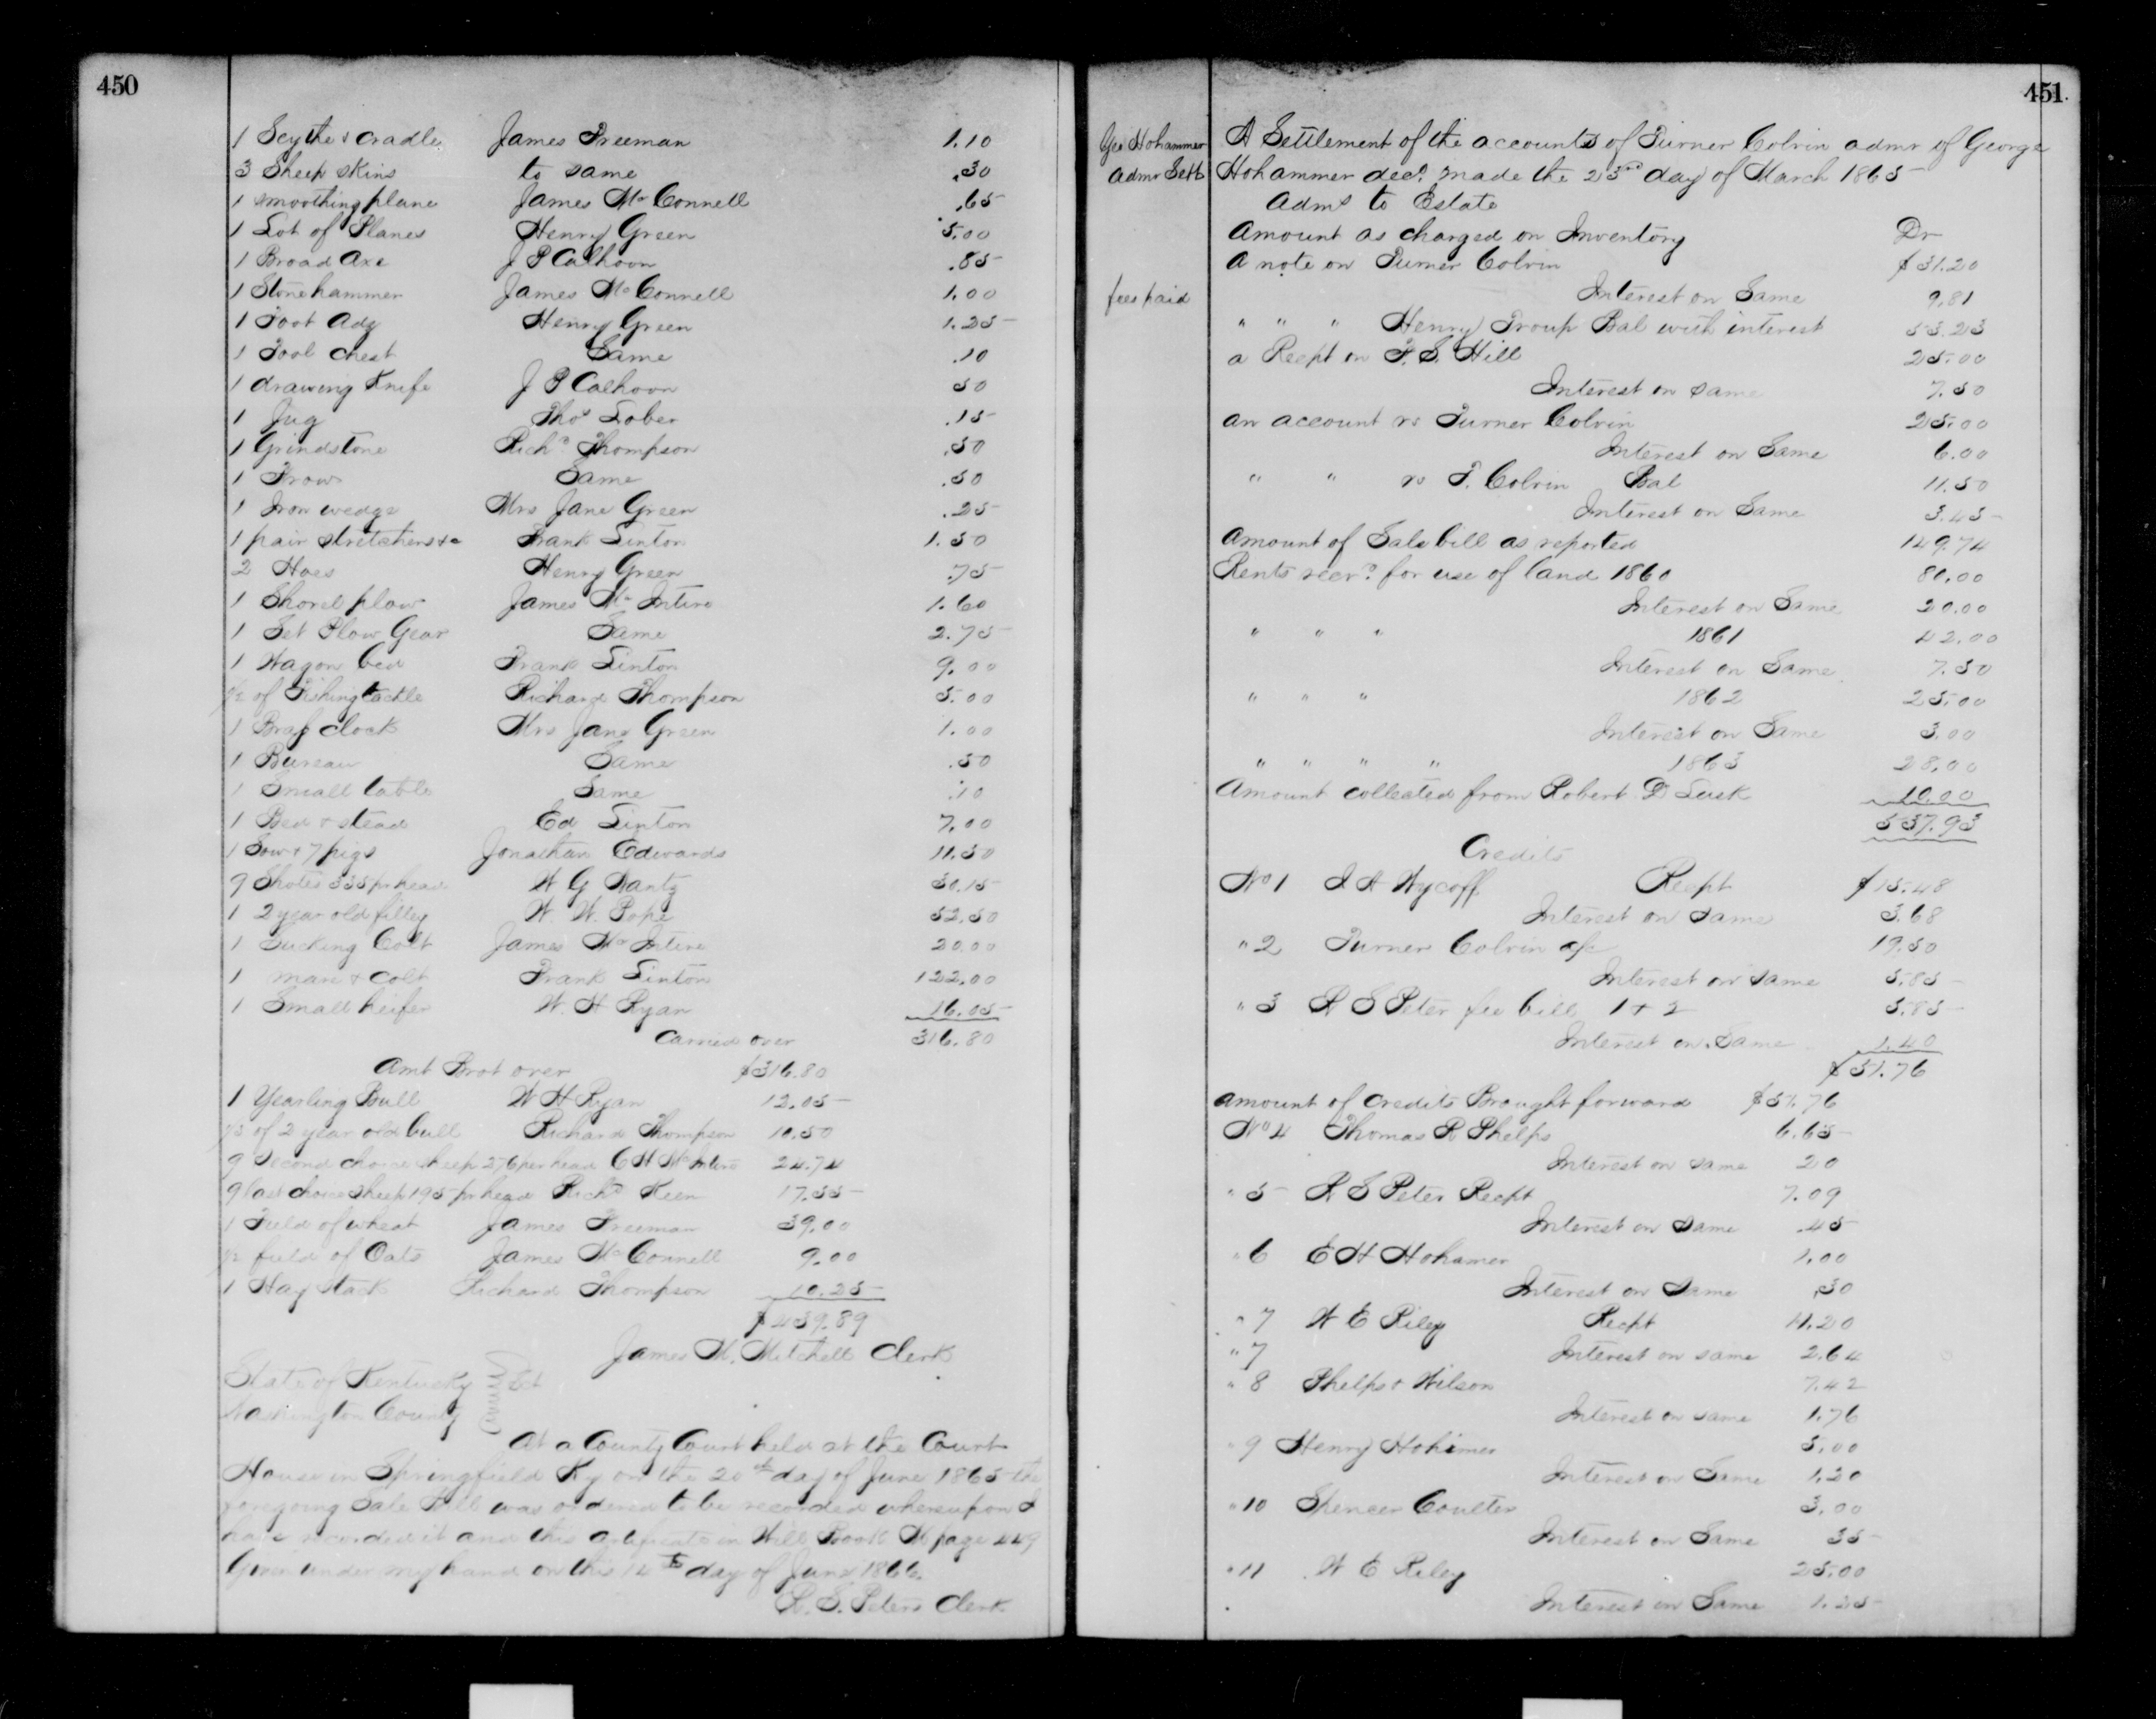 450
1 Scythe & cradle James Freeman 1.10
3 Sheep skins to same .30
1 smoothing plane James McConnell .65
1 Lot of Planes Henry Green 5.00
1 Broad Axe J P Calhoon .85
1 Stone hammer James McConnell 1.00
1 Foot Adz Henry Green 1.25
1 Tool chest Same .10
1 drawing Knife J P Calhoon 50
1 Jug Thos Lober .15
1 Grindstone Richd Thompson .50
1 Frow Same .50
1 Iron wedge Mrs Jane Green .25
1 pair stretchers &c Frank Linton 1.50
2 Hoes Henry Green .75
1 Shovel plow James McIntire 1.60
1 Set Plow Gear Same 2.75
1 Wagon bed Frank Linton 9.00
1/2 of Fishing tackle Richard Thompson 5.00
1 Brass clock Mrs Jane Green 1.00
1 Bureau Same .50
1 Small table Same .10
1 Bed & stead Ed Linton 7.00
1 Sow & 7 pigs Jonathan Edwards 11.50
9 Shotes 335 pr head W G Wantz 30.15
1 2 year old filley W. W. Pope 52.50
1 Sucking Colt James McIntire 20.00
1 mare & colt Frank Linton 122.00
1 Small heifer W. H Ryan 16.05
Carried over 316.80
Amt Brot over $316.80
1 Yearling Bull W H Ryan 12.05
1/2 of 2 year old bull Richard Thompson 10.50
9 Second choice sheep 276 per head C H McIntire 24.74
9 last choice sheep 195 pr head Richd Keen 17.55
1 Field of wheat James Freeman 39.00
1/2 field of Oats James McConnell 9.00
1 Hay Stack Richard Thompson 10.25
$439.89
James M. Mitchell Clerk
State of Kentucky Sct
Washington County
At a County Court held at the Court
House in Springfield Ky on the 20th day of June 1865 the
foregoing Sale Bill was ordered to be recorded whereupon I
have recorded it and this certificate in Will Book M page 449
Given under my hand on this 12th day of June 1866.
R. S. Peters Clerk
451
Geo Hohammer
Admr Settt
fees paid
A Settlement of the accounts of Turner Colvin admr of George
Hohammer decd made the 23rd day of March 1865
Admr to Estate
Amount as charged on Inventory Dr
A note on Turner Colvin $31.20
Interest on Same 9.81
" " " Henry Troup Bal with interest 53.23
a Recpt on P. S. Hill 25.00
Interest on same 7.50
an account vs Turner Colvin 25.00
Interest on Same 6.00
" " vs T. Colvin Bal 11.50
Interest on Same 3.45
Amount of Sale bill as reported 149.74
Rents recvd for use of land 1860 80.00
Interest on Same 20.00
" " " 1861 42.00
Interest on Same 7.50
" " " 1862 25.00
Interest on Same 3.00
" " " " 1863 28.00
Amount collected from Robert D Lusk 10.00
537.93
Credits
No 1 J A Wycoff Recpt $15.48
Interest on same 3.68
" 2 Turner Colvin a/c 19.50
Interest on same 5.85
" 3 R S Peter fee bill 1 & 2 5.85
Interest on Same 1.40
$51.76
Amount of credits Brought forward $51.76
No 4 Thomas R Phelps 6.65
Interest on same 20
" 5 R S Peter Recpt 7.09
Interest on same .45
" 6 E H Hohamer 1.00
Interest on same .30
" 7 W E Riley Recpt 11.20
" 7 Interest on same 2.64
" 8 Phelps & Wilson 7.42
Interest on same 1.76
" 9 Henry Hohimer 5.00
Interest on Same 1.20
" 10 Spencer Coulter 3.00
Interest on Same 35
" 11 W E Riley 25.00
Interest on Same 1.25